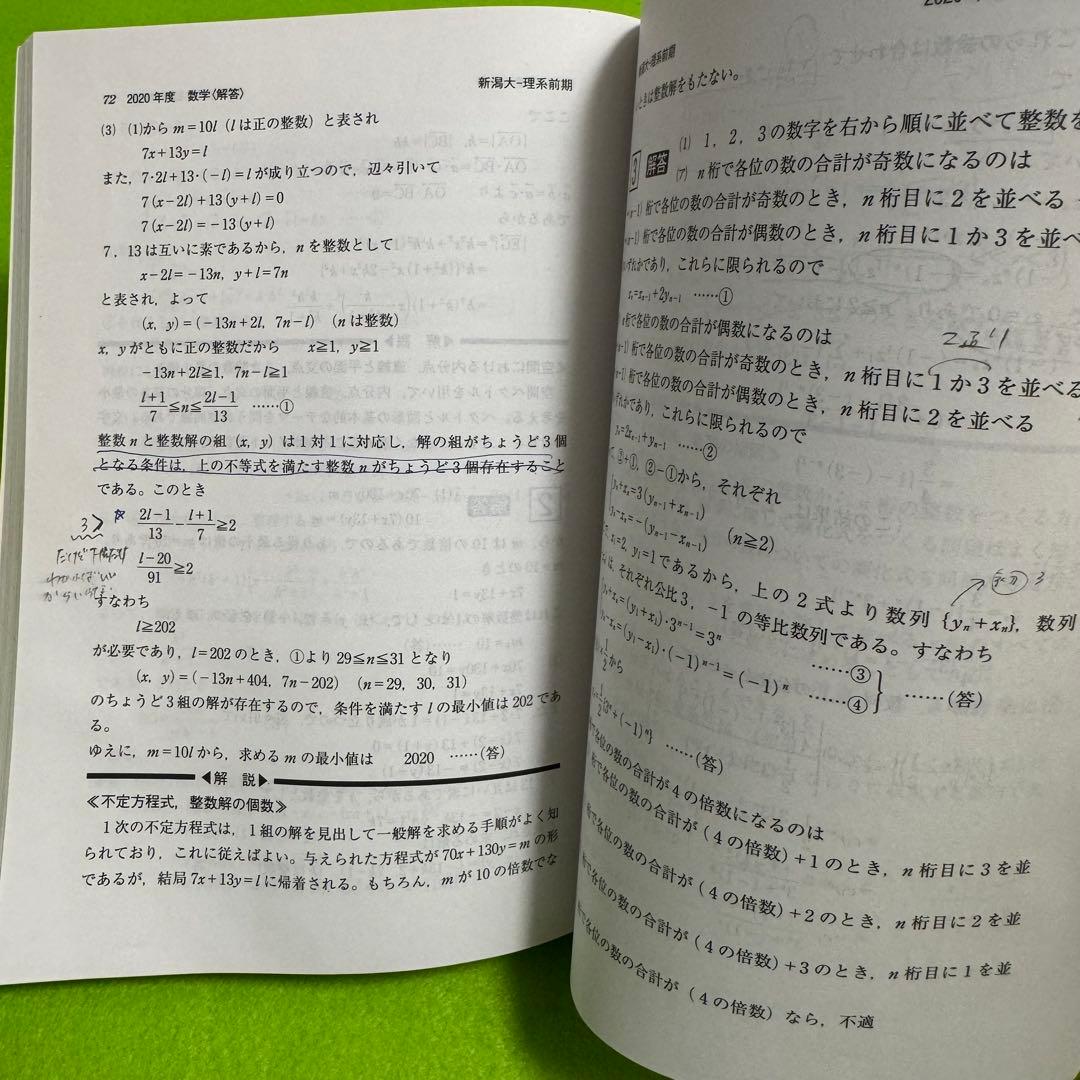 72 2020年度 数学〈解答〉
新潟大-理系前期
(3) (1)から m=10l (l は正の整数) と表され
7x+13y=l
また, 7·2l+13·(-l)=l が成り立つので, 辺々引いて
7(x-2l)+13(y+l)=0
7(x-2l)=-13(y+l)
7, 13は互いに素であるから, n を整数として
x-2l=-13n, y+l=7n
と表され, よって
(x, y)=(-13n+2l, 7n-l) (n は整数)
x, y がともに正の整数だから x≧1, y≧1
-13n+2l≧1, 7n-l≧1
(l+1)/7≦n≦(2l-1)/13 ……①
整数 n と整数解の組 (x, y) は1対1に対応し, 解の組がちょうど3個
となる条件は, 上の不等式を満たす整数 n がちょうど3個存在すること
である。このとき
3>
(2l-1)/13-(l+1)/7≧2
(l-20)/91≧2
すなわち
l≧202
が必要であり, l=202のとき, ①より 29≦n≦31となり
(x, y)=(-13n+404, 7n-202) (n=29, 30, 31)
のちょうど3組の解が存在するので, 条件を満たす l の最小値は202であ
る。
ゆえに, m=10l から, 求める m の最小値は 2020 ……(答)
◀解 説▶
≪不定方程式, 整数解の個数≫
1次の不定方程式は, 1組の解を見出して一般解を求める手順がよく知
られており, これに従えばよい。与えられた方程式が 70x+130y=m の形
であるが, 結局 7x+13y=l に帰着される。もちろん, m が10の倍数でな
新潟大-理系前期
ときは整数解をもたない。
3 解答 (1) 1, 2, 3の数字を右から順に並べて整数を
(ア) n 桁で各位の数の合計が奇数になるのは
桁で各位の数の合計が奇数のとき, n 桁目に2を並べる
桁で各位の数の合計が偶数のとき, n 桁目に1か3を並べ
いずれかであり, これらに限られるので
xₙ=xₙ₋₁+2yₙ₋₁ ……①
桁で各位の数の合計が偶数になるのは
桁で各位の数の合計が奇数のとき, n 桁目に1か3を並べる
桁で各位の数の合計が偶数のとき, n 桁目に2を並べる
ずれかであり, これらに限られるので
yₙ=2xₙ₋₁+yₙ₋₁ ……②
②-①から, それぞれ
yₙ+xₙ=3(yₙ₋₁+xₙ₋₁)
yₙ-xₙ=-(yₙ₋₁-xₙ₋₁) (n≧2)
x₁=2, y₁=1であるから, 上の2式より数列 {yₙ+xₙ}, 数列
は, それぞれ公比3, -1の等比数列である。すなわち
yₙ+xₙ=(y₁+x₁)·3ⁿ⁻¹=3ⁿ ……③
yₙ-xₙ=(y₁-x₁)·(-1)ⁿ⁻¹=(-1)ⁿ ……④ ……(答)
から
{3ⁿ+(-1)ⁿ} ……(答)
で各位の数の合計が4の倍数になるのは
桁で各位の数の合計が (4の倍数)+1のとき, n 桁目に3を並
で各位の数の合計が (4の倍数)+2のとき, n 桁目に2を並
で各位の数の合計が (4の倍数)+3のとき, n 桁目に1を並
の数の合計が (4の倍数) なら, 不適